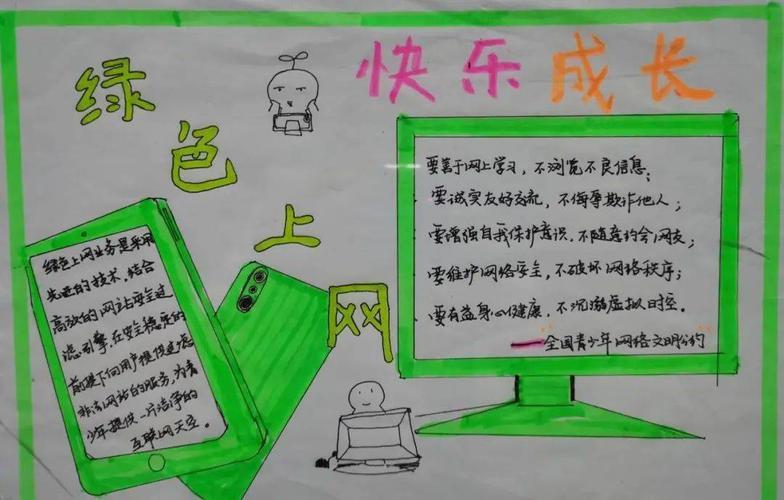 绿色上网
快乐成长
绿色上网业务是采用
先进的技术，结合
高效的网站安全过
滤引擎在安全稳定的
前提下向用户提供过滤
非法网站的服务，为青
少年提供一片洁净的
互联网天空。
要善于网上学习，不浏览不良信息；
要诚实友好交流，不侮辱欺诈他人；
要增强自我保护意识，不随意约会网友；
要维护网络安全，不破坏网络秩序；
要有益身心健康，不沉溺虚拟时空。
——全国青少年网络文明公约